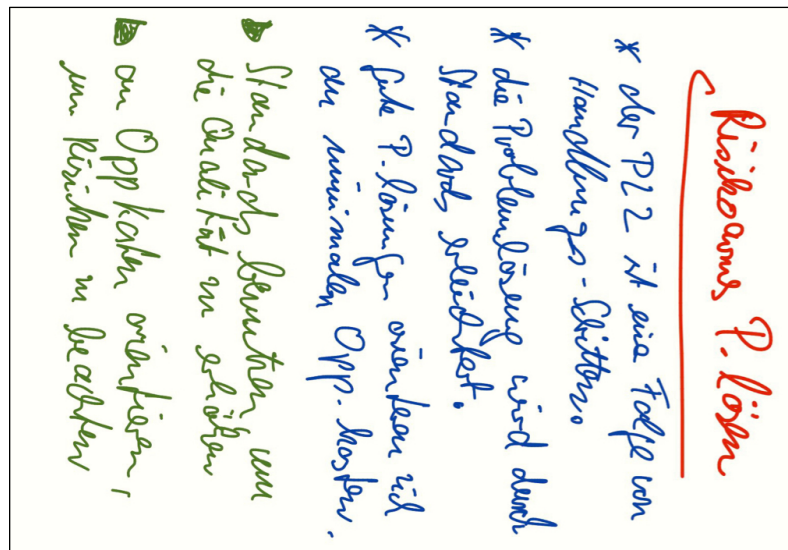 Risikoarmes P. lösen
* der PLZ ist eine Folge von
Handlungs-Schritten.
* die Problemlösung wird durch
Standards erleichtert.
* Gute P. lösungen orientieren sich
an minimalen Opp.-kosten.
Standards benutzen, um
die Qualität zu erhöhen
an Oppkosten orientieren,
um Risiken zu beachten